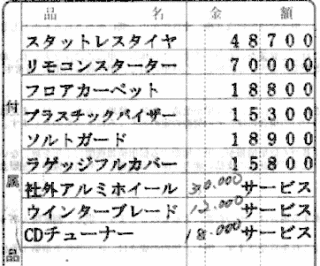 品 名 金 額
スタットレスタイヤ 48700
リモコンスターター 70000
フロアカーペット 18800
プラスチックバイザー 15300
ソルトガード 18900
ラゲッジフルカバー 15800
社外アルミホイール 30.000 サービス
ウインターブレード 12.000 サービス
CDチューナー 18.000 サービス
付属品